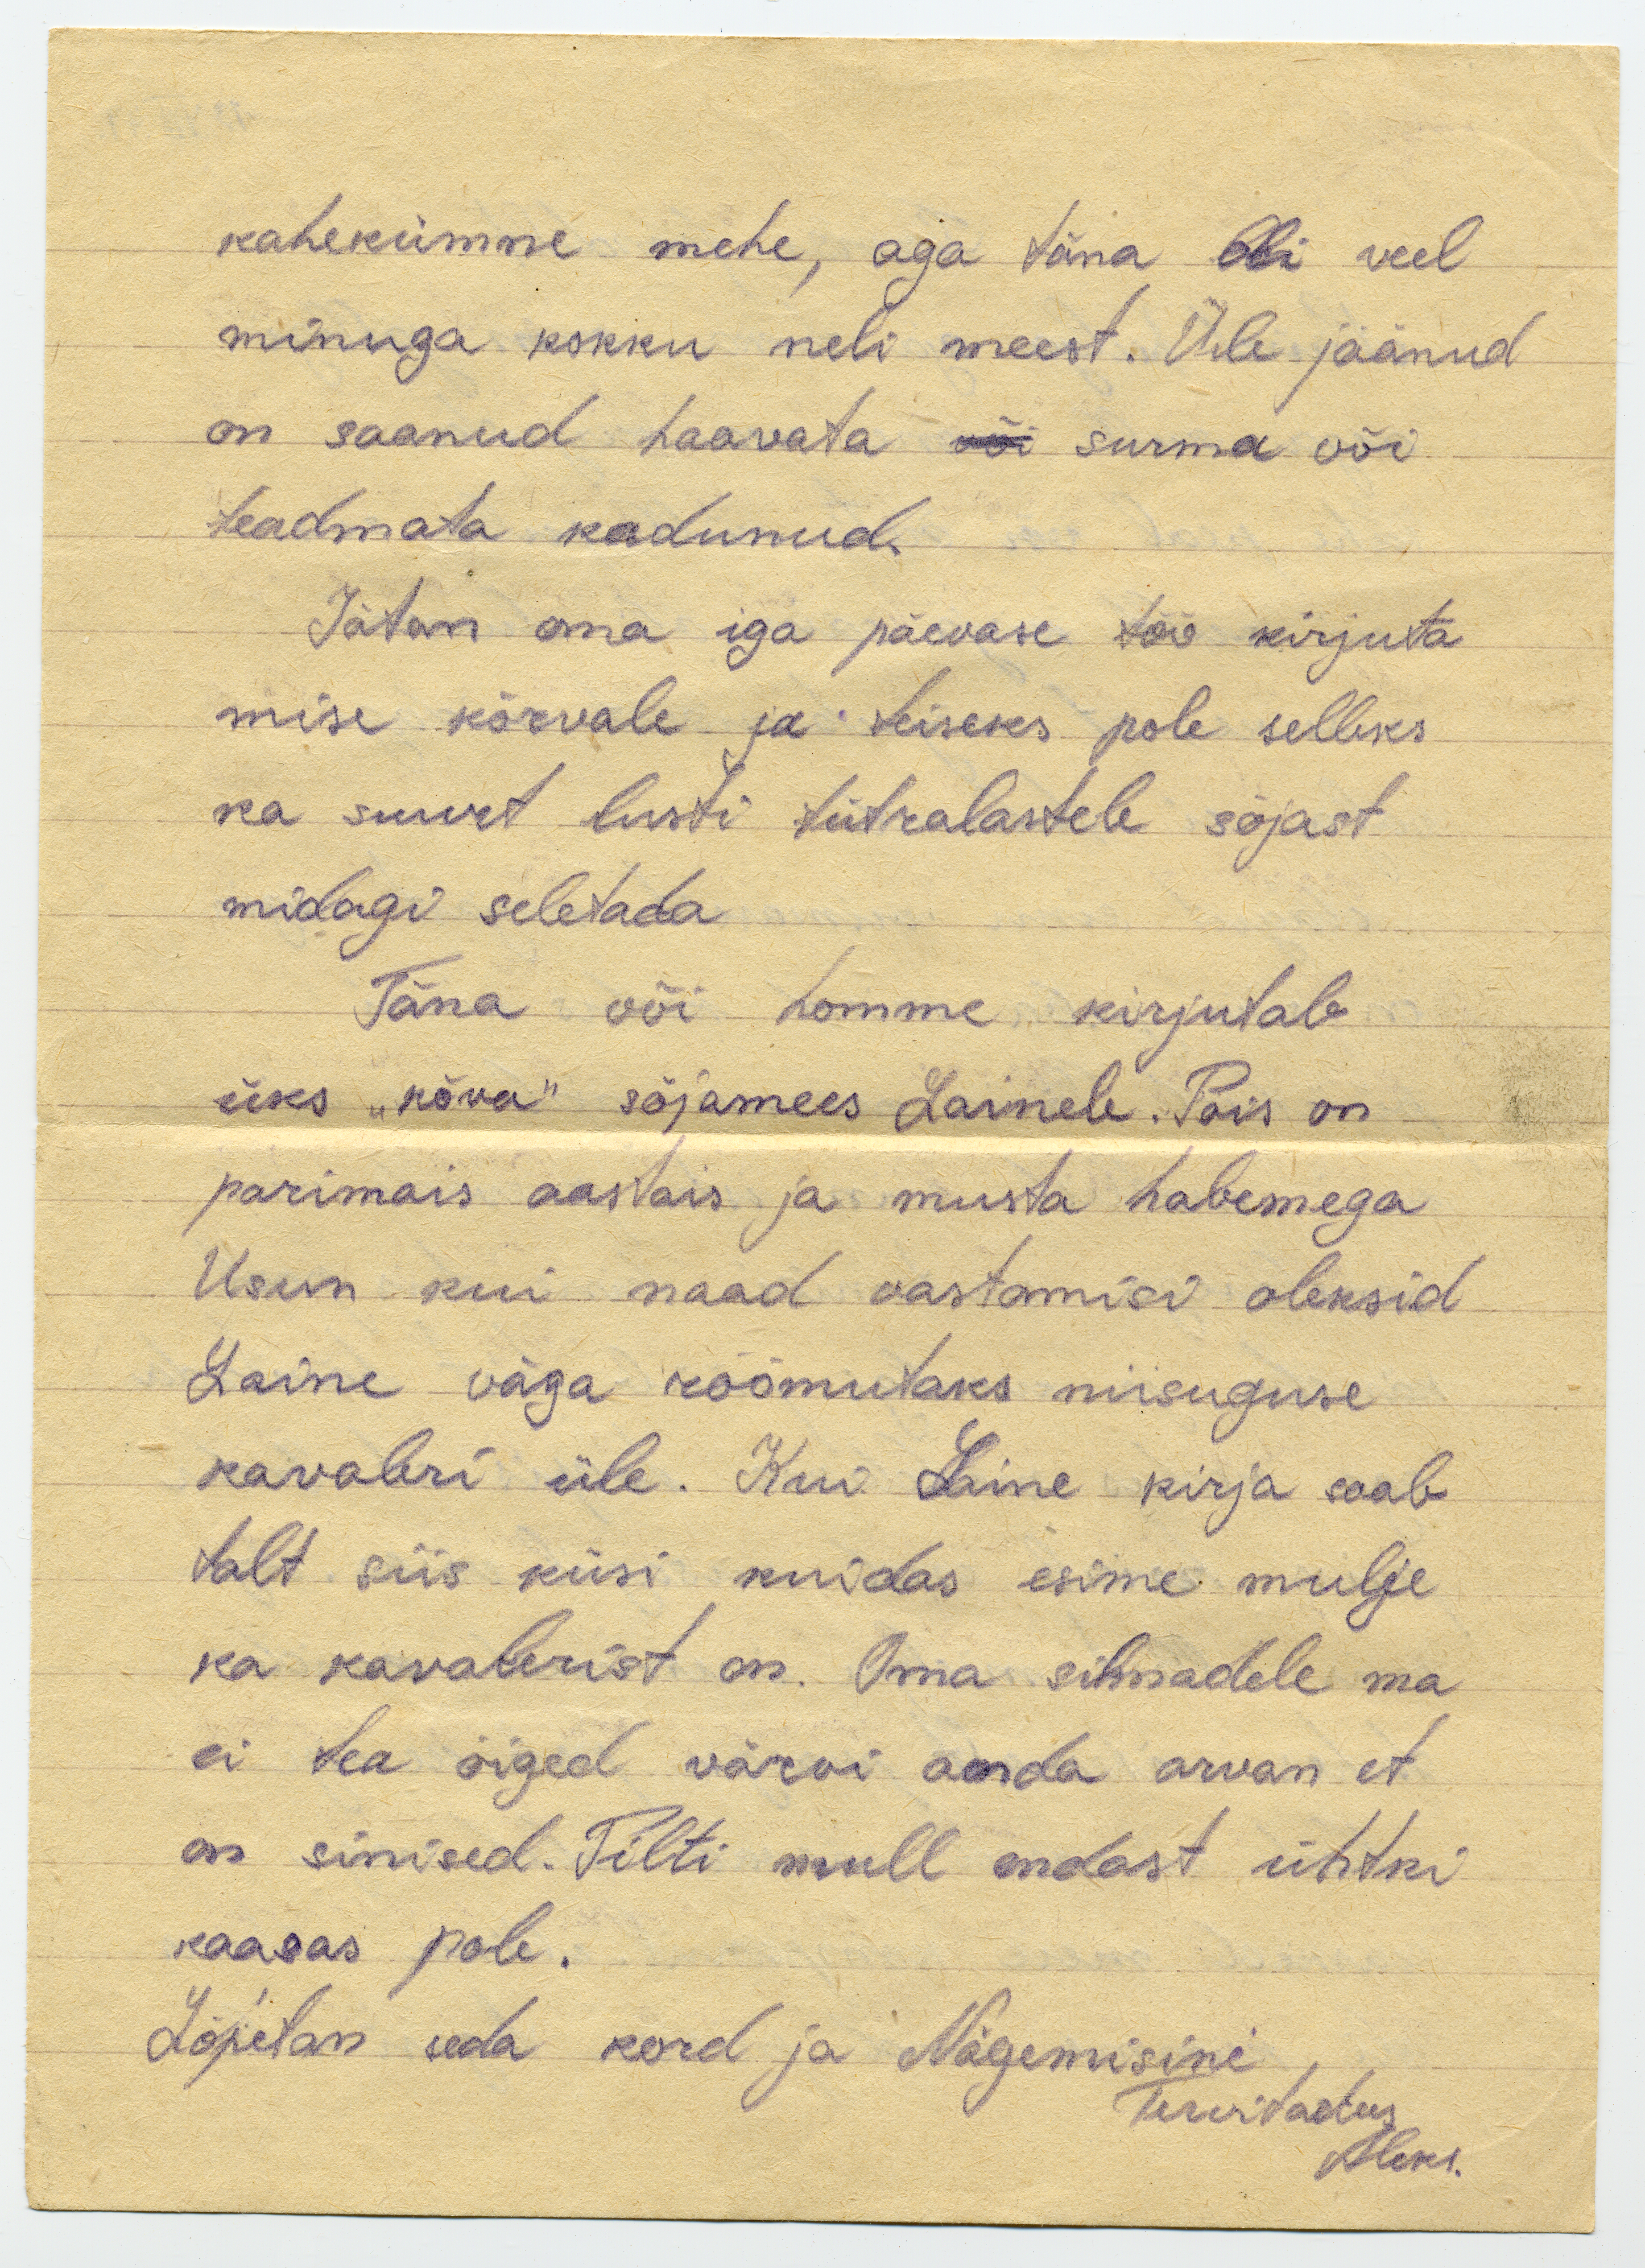 kahekümne mehe, aga täna oli veel
minuga kokku neli meest. Üle jäänud
on saanud haavata või surma või
teadmata kadunud.
Jätan oma iga päevase töö kirjuta
mise kõrvale ja teiseks pole selleks
ka suurt lusti tütralastele sõjast
midagi seletada
Täna või homme kirjutab
üks „kõva" sõjamees Lainele. Pois on
parimais aastais ja musta habemega
Usun kui naad vastamisi oleksid
Laine väga rõõmutaks niisuguse
kavaleri üle. Kui Laine kirja saab
talt siis küsi kuidas esime mulje
ka kavalerist on. Oma silmadele ma
ei tea õiged värvi anda arvan et
on sinised. Pilti mull endast ühtki
kaasas pole.
Lõpetan seda kord ja Nägemisini
Tervitades
Aleks.